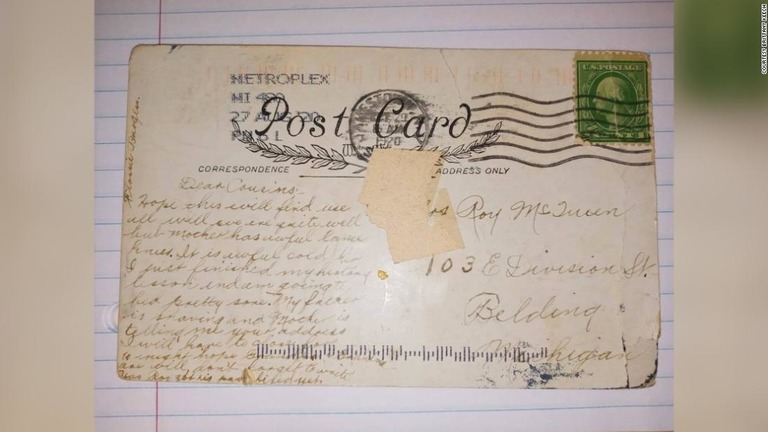 METROPLEX
MI 480
27 AUG '20
PM 5 L
U.S. POSTAGE
Post Card
CORRESPONDENCE
ADDRESS ONLY
Dear Cousins,
Hope this will find use
all well we are quite well
but Mother has awful lame
knees. It is awful cold
I just finished my history
lesson and am going to
bed pretty soon. My father
is shaving and Mother is
telling me your address
I will have to close for
to night hope
are well. Don't forget to write
Roy McQueen
103 E Division St.
Belding
Michigan
COURTESY BRITTANY KEECH